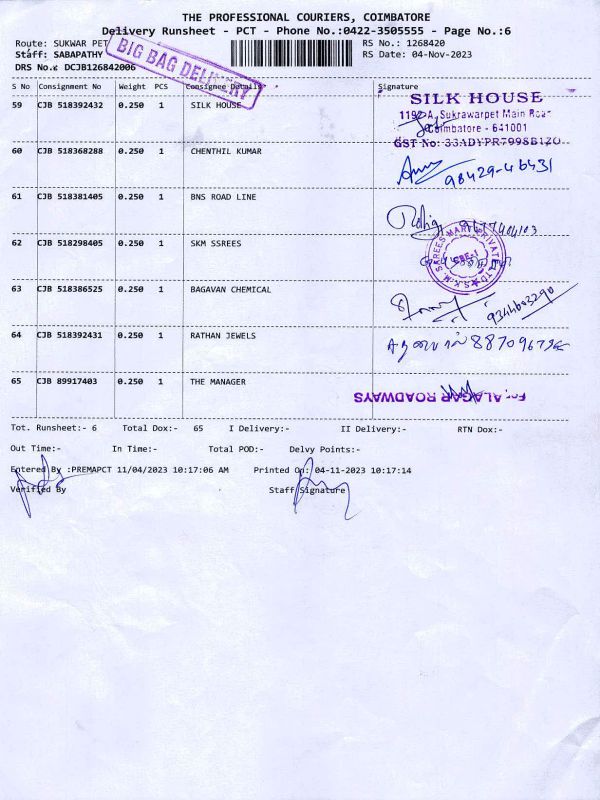 THE PROFESSIONAL COURIERS, COIMBATORE
Delivery Runsheet - PCT - Phone No.:0422-3505555 - Page No.:6
Route: SUKWAR PET
RS No.: 1268420
Staff: SABAPATHY
RS Date: 04-Nov-2023
DRS No.: DCJB126842006
BIG BAG DELIVERY
S No Consignment No Weight PCS Consignee Details Signature
59 CJB 518392432 0.250 1 SILK HOUSE
SILK HOUSE
Sukrawarpet Main Road
Coimbatore - 641001
GST No: 33ADYPR7998B1ZO
60 CJB 518368288 0.250 1 CHENTHIL KUMAR
98429-46431
61 CJB 518381405 0.250 1 BNS ROAD LINE
62 CJB 518298405 0.250 1 SKM SSREES
S.K.M. SAREES MART PRIVATE LTD
CBE-1
63 CJB 518386525 0.250 1 BAGAVAN CHEMICAL
9344603290
64 CJB 518392431 0.250 1 RATHAN JEWELS
65 CJB 89917403 0.250 1 THE MANAGER
For ALAGAR ROADWAYS
Tot. Runsheet:- 6 Total Dox:- 65 I Delivery:- II Delivery:- RTN Dox:-
Out Time:- In Time:- Total POD:- Delvy Points:-
Entered By :PREMAPCT 11/04/2023 10:17:06 AM Printed On: 04-11-2023 10:17:14
Verified By Staff Signature